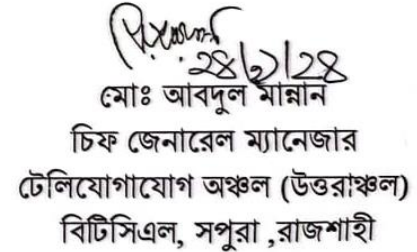 মোঃ আবদুল মান্নান
চিফ জেনারেল ম্যানেজার
টেলিযোগাযোগ অঞ্চল (উত্তরাঞ্চল)
বিটিসিএল, সপুরা ,রাজশাহী